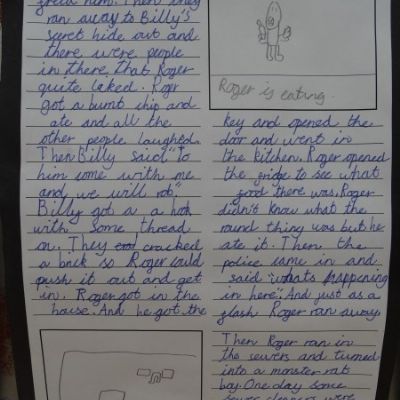 freed him. Then they
ran away to Billy's
secret hide out and
there were people
in there that Roger
quite liked. Roger
got a burnt chip and
ate and all the
other people laughed.
Then Billy said "to
him come with me
and we will rob".
Billy got a a hook
with some thread
on. They cracked
a brick so Roger could
push it out and get
in. Roger got in the
house. And he got the
Roger is eating.
key and opened the
door and went in
the kitchen. Roger opened
the fridge to see what
food there was. Roger
didn't know what the
round thing was but he
ate it. Then the
police came in and
said "whats happening
in here". And just as a
flash Roger ran away.
Then Roger ran in
the sewers and turned
into a monster rat
boy. One day some
sewer cleaners were